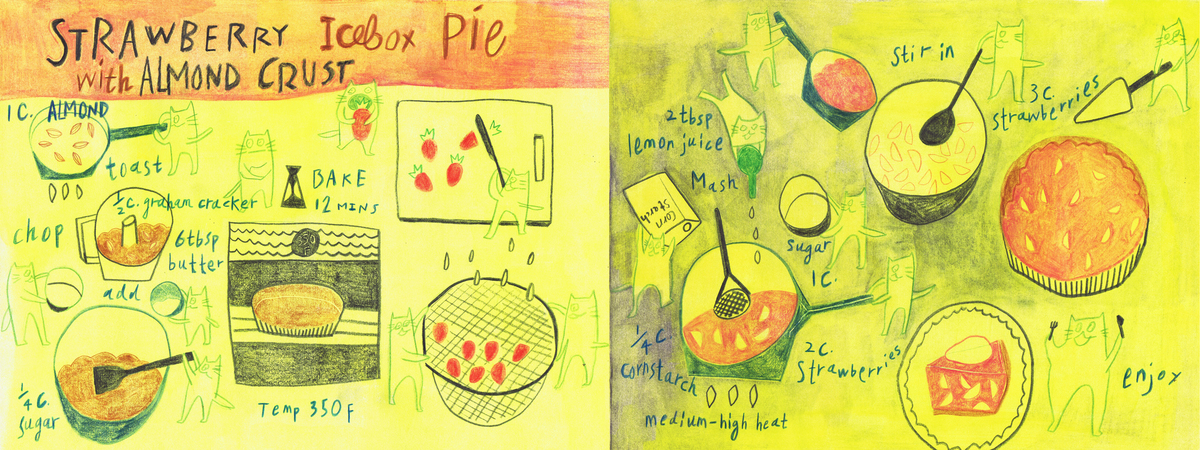 STRAWBERRY Icebox Pie
with ALMOND CRUST
1 C. ALMOND
toast
1/2 C. graham cracker
chop
6 tbsp
butter
add
1/4 C.
sugar
BAKE
12 MINS
350
Temp 350 F
2 tbsp
lemon juice
Mash
Corn
Starch
sugar
1 C.
1/4 C.
cornstarch
2 C.
Strawberries
medium-high heat
Stir in
3 C.
strawberries
enjoy